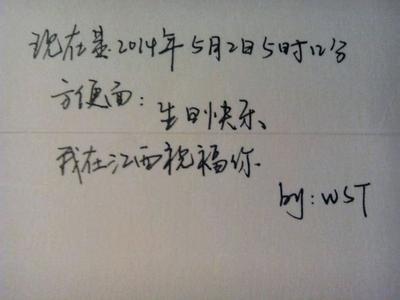 现在是2014年5月2日5时12分
方便面：
生日快乐、
我在江西祝福你.
by：WST